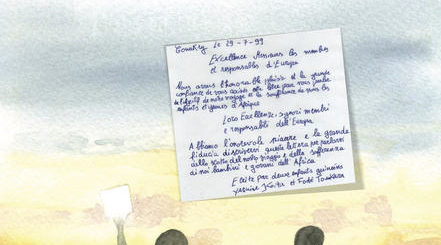 Conakry, le 29-7-99
Excellence Messieurs les membres
et responsables d'Europa
Nous avons l'honorable plaisir et la grande
confiance de vous écrire cette lettre pour vous parler
de l'objectif de notre voyage et la souffrance de nous les
enfants et jeunes d'Afrique
Loro Eccellenze, signori membri
e responsabili dell'Europa
Abbiamo l'onorevole piacere e la grande
fiducia di scrivervi questa lettera per parlarvi
dello scopo del nostro viaggio e della sofferenza
di noi bambini e giovani dell'Africa
Ecrite par deux enfants guinéens
Yaguine Koita et Fodé Tounkara